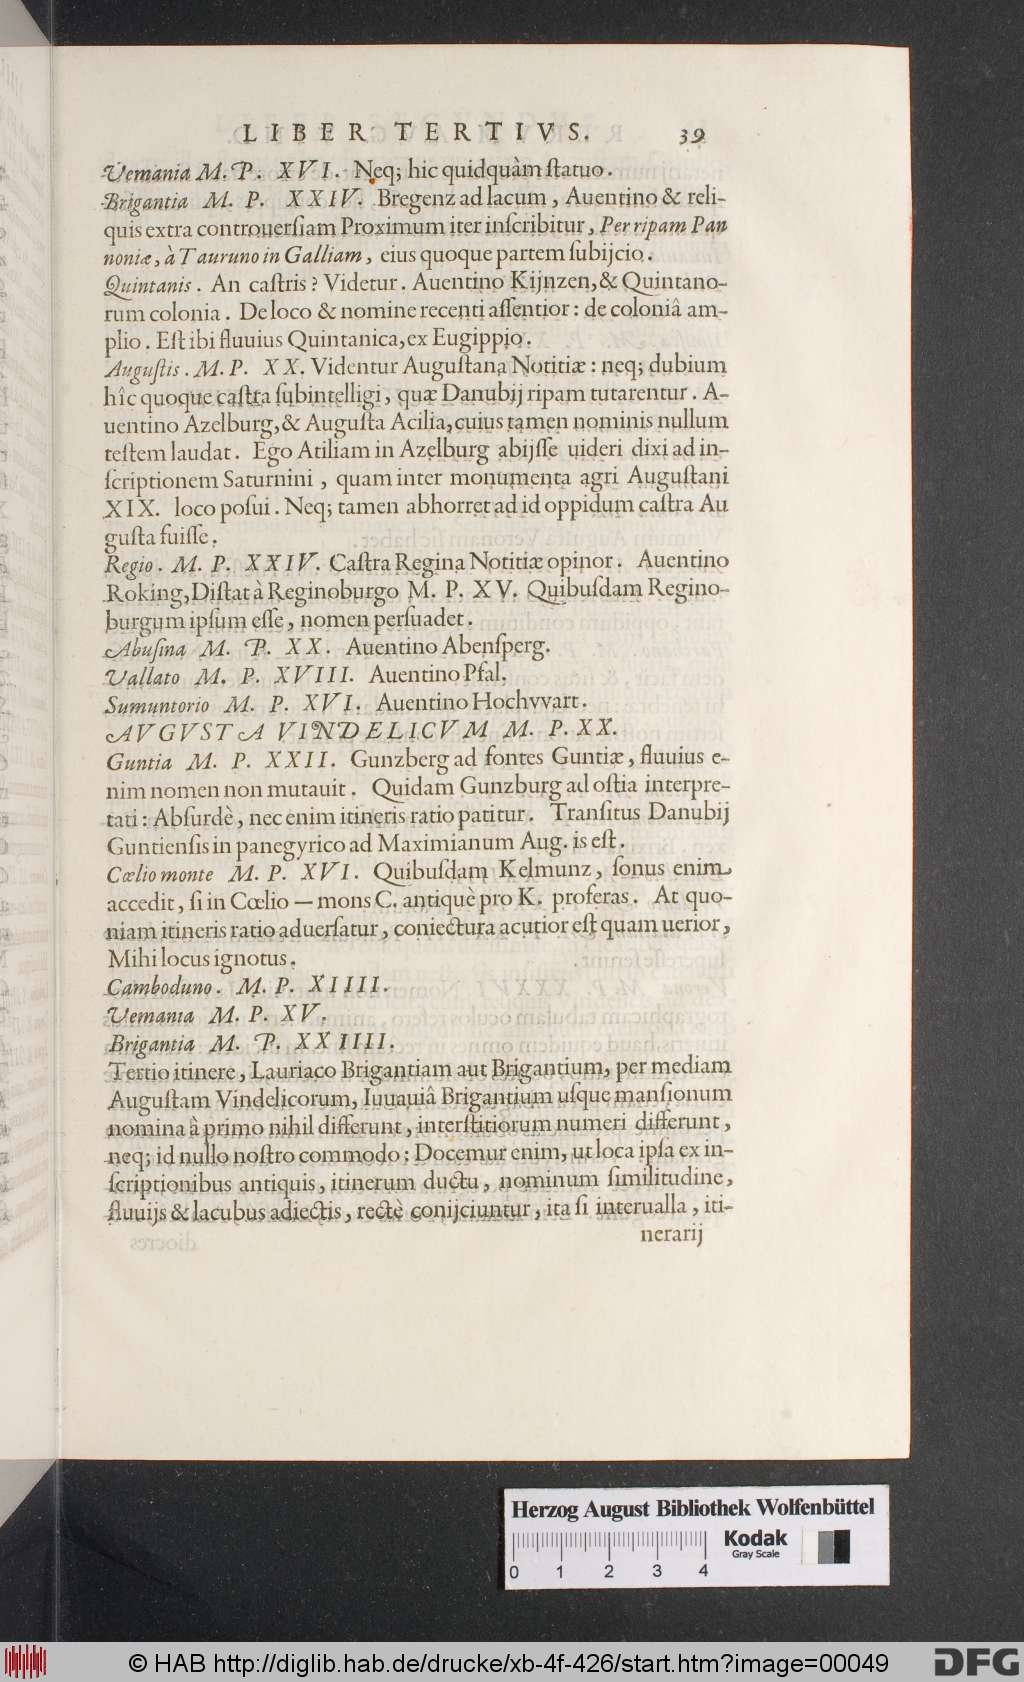 LIBER TERTIVS. 39
Vemania M. P. XVI. Neq; hic quidquàm ſtatuo.
Brigantia M. P. XXIV. Bregenz ad lacum, Auentino & reli-
quis extra controuerſiam Proximum iter inſcribitur, Per ripam Pan
noniæ, à Tauruno in Galliam, eius quoque partem ſubijcio.
Quintanis. An caſtris? Videtur. Auentino Kijnzen, & Quintano-
rum colonia. De loco & nomine recenti aſſentior: de coloniâ am-
plio. Eſt ibi fluuius Quintanica, ex Eugippio.
Auguſtis. M. P. XX. Videntur Auguſtana Notitiæ: neq; dubium
hîc quoque caſtra ſubintelligi, quæ Danubij ripam tutarentur. A-
uentino Azelburg, & Auguſta Acilia, cuius tamen nominis nullum
teſtem laudat. Ego Atiliam in Azelburg abijſſe uideri dixi ad in-
ſcriptionem Saturnini, quam inter monumenta agri Auguſtani
XIX. loco poſui. Neq; tamen abhorret ad id oppidum caſtra Au
guſta fuiſſe.
Regio. M. P. XXIV. Caſtra Regina Notitiæ opinor. Auentino
Roking, Diſtat à Reginoburgo M. P. XV. Quibuſdam Regino-
burgum ipſum eſſe, nomen perſuadet.
Abuſina M. P. XX. Auentino Abenſperg.
Vallato M. P. XVIII. Auentino Pfal.
Sumuntorio M. P. XVI. Auentino Hochvvart.
AVGVSTA VINDELICVM M. P. XX.
Guntia M. P. XXII. Gunzberg ad fontes Guntiæ, fluuius e-
nim nomen non mutauit. Quidam Gunzburg ad oſtia interpre-
tati: Abſurdè, nec enim itineris ratio patitur. Tranſitus Danubij
Guntienſis in panegyrico ad Maximianum Aug. is eſt.
Cœlio monte M. P. XVI. Quibuſdam Kelmunz, ſonus enim
accedit, ſi in Cœlio — mons C. antiquè pro K. proferas. At quo-
niam itineris ratio aduerſatur, coniectura acutior eſt quam uerior,
Mihi locus ignotus.
Camboduno. M. P. XIIII.
Vemania M. P. XV.
Brigantia M. P. XXIIII.
Tertio itinere, Lauriaco Brigantiam aut Brigantium, per mediam
Auguſtam Vindelicorum, Iuuauiâ Brigantium uſque manſionum
nomina à primo nihil differunt, interſtitiorum numeri differunt,
neq; id nullo noſtro commodo: Docemur enim, ut loca ipſa ex in-
ſcriptionibus antiquis, itinerum ductu, nominum ſimilitudine,
fluuijs & lacubus adiectis, rectè conijciuntur, ita ſi interualla, iti-
nerarij
Herzog August Bibliothek Wolfenbüttel
Kodak
Gray Scale
0 1 2 3 4
© HAB http://diglib.hab.de/drucke/xb-4f-426/start.htm?image=00049
DFG